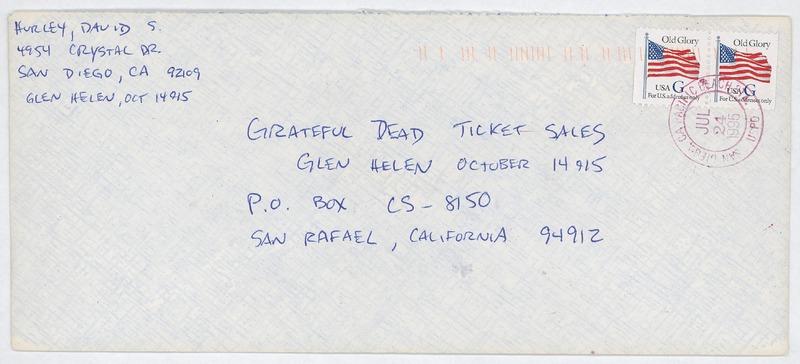 HURLEY, DAVID S.
4954 CRYSTAL DR.
SAN DIEGO, CA 92109
GLEN HELEN, OCT 14 & 15
Old Glory
USA G
For U.S. addresses only
Old Glory
USA G
For U.S. addresses only
PACIFIC BEACH
SAN DIEGO, CA
USPO
JUL
24
1995
GRATEFUL DEAD TICKET SALES
GLEN HELEN OCTOBER 14 & 15
P.O. BOX CS-8150
SAN RAFAEL, CALIFORNIA 94912